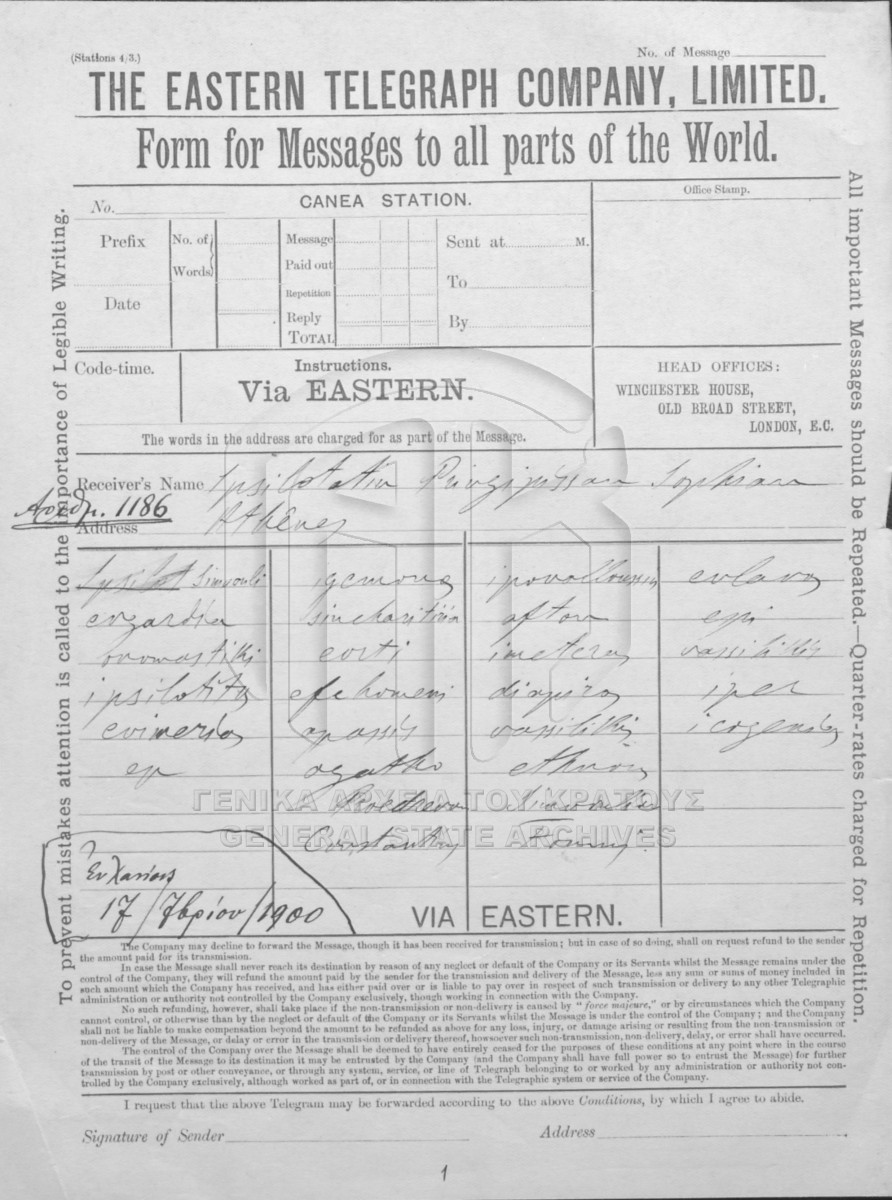 (Stations 4/3.)
No. of Message
THE EASTERN TELEGRAPH COMPANY, LIMITED.
Form for Messages to all parts of the World.
No.
CANEA STATION.
Office Stamp.
Prefix
No. of Words
Message
Sent at M.
Paid out
To
Date
Repetition
Reply
By
TOTAL
Code-time.
Instructions.
Via EASTERN.
HEAD OFFICES:
WINCHESTER HOUSE,
OLD BROAD STREET,
LONDON, E.C.
The words in the address are charged for as part of the Message.
Receiver's Name Ipsilotatin Sophian
Αριθμ. 1186
Address Athènes
igemona evlavos
enkardia aftou epi
onomastiki eorti imeteras vassilikis
ipsilotitos efchomeni diapiros iper
evimerias apassis vassilikis icogenias
ep agatho ethnous
Proedrevon
ΓΕΝΙΚΑ ΑΡΧΕΙΑ ΤΟΥ ΚΡΑΤΟΥΣ
GENERAL STATE ARCHIVES
Εν Χανίοις
17/7βρίου/1900
VIA EASTERN.
The Company may decline to forward the Message, though it has been received for transmission; but in case of so doing, shall on request refund to the sender
the amount paid for its transmission.
In case the Message shall never reach its destination by reason of any neglect or default of the Company or its Servants whilst the Message remains under the
control of the Company, they will refund the amount paid by the sender for the transmission and delivery of the Message, less any sum or sums of money included in
such amount which the Company has received, and has either paid over or is liable to pay over in respect of such transmission or delivery to any other Telegraphic
administration or authority not controlled by the Company exclusively, though working in connection with the Company.
No such refunding, however, shall take place if the non-transmission or non-delivery is caused by "force majeure," or by circumstances which the Company
cannot control, or otherwise than by the neglect or default of the Company or its Servants whilst the Message is under the control of the Company; and the Company
shall not be liable to make compensation beyond the amount to be refunded as above for any loss, injury, or damage arising or resulting from the non-transmission or
non-delivery of the Message, or delay or error in the transmission or delivery thereof, howsoever such non-transmission, non delivery, delay, or error shall have occurred.
The control of the Company over the Message shall be deemed to have entirely ceased for the purposes of these conditions at any point where in the course
of the transit of the Message to its destination it may be entrusted by the Company (and the Company shall have full power so to entrust the Message) for further
transmission by post or other conveyance, or through any system, service, or line of Telegraph belonging to or worked by any administration or authority not con-
trolled by the Company exclusively, although worked as part of, or in connection with the Telegraphic system or service of the Company.
I request that the above Telegram may be forwarded according to the above Conditions, by which I agree to abide.
Signature of Sender
Address
1
To prevent mistakes attention is called to the importance of Legible Writing.
All important Messages should be Repeated.—Quarter-rates charged for Repetition.